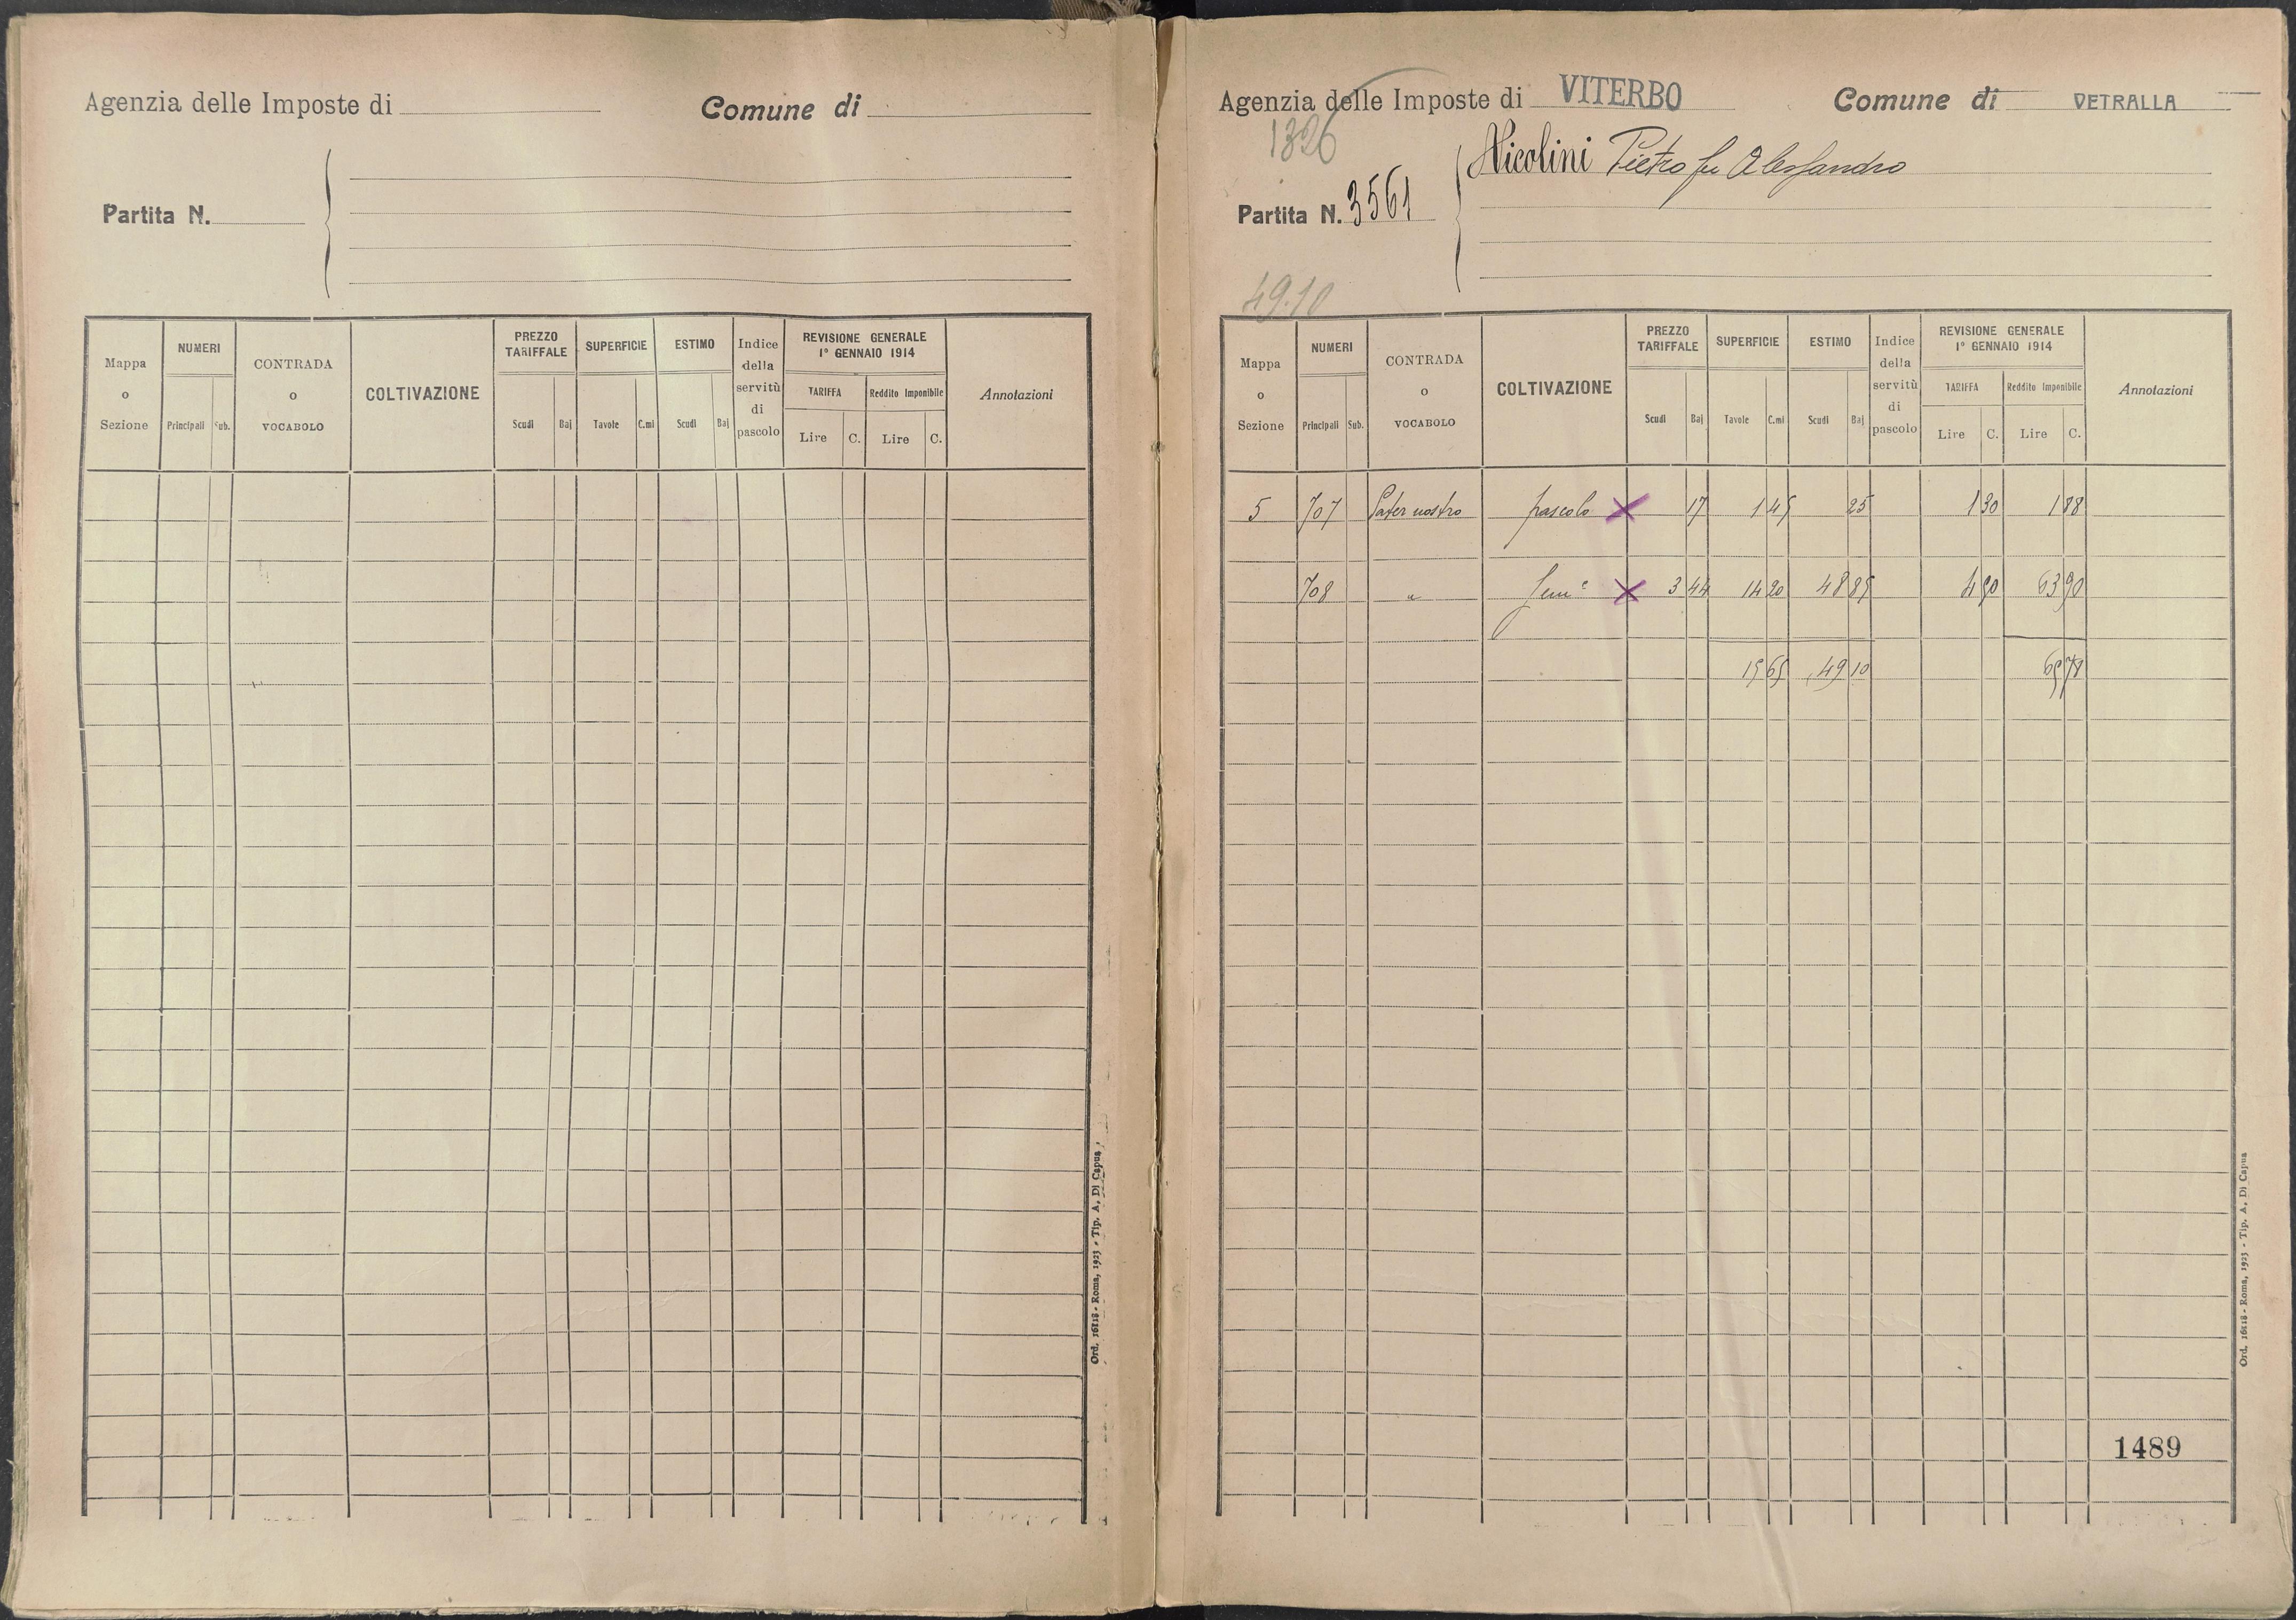 Agenzia delle Imposte di
Comune di
Partita N.
Mappa o Sezione
NUMERI
Principali
Sub.
CONTRADA o VOCABOLO
COLTIVAZIONE
PREZZO TARIFFALE
Scudi
Baj
SUPERFICIE
Tavole
C.mi
ESTIMO
Scudi
Baj
Indice della servitù di pascolo
REVISIONE GENERALE
1° GENNAIO 1914
TARIFFA
Reddito Imponibile
Lire C. Lire C.
Annotazioni
Ord. 16118 - Roma, 1923 - Tip. A. Di Capua
Agenzia delle Imposte di VITERBO
Comune di VETRALLA
1326
Nicolini Pietro fu Alessandro
Partita N. 3561
49.10
Mappa o Sezione
NUMERI
Principali
Sub.
CONTRADA o VOCABOLO
COLTIVAZIONE
PREZZO TARIFFALE
Scudi
Baj
SUPERFICIE
Tavole
C.mi
ESTIMO
Scudi
Baj
Indice della servitù di pascolo
REVISIONE GENERALE
1° GENNAIO 1914
TARIFFA
Reddito Imponibile
Lire C. Lire C.
Annotazioni
5 707 Pater nostro pascolo 17 1 45 25 1 30 1 88
708 " Sem.e 3 44 14 20 48 85 4 50 63 90
15 65 49 10 65 78
1489
Ord. 16118 - Roma, 1923 - Tip. A. Di Capua